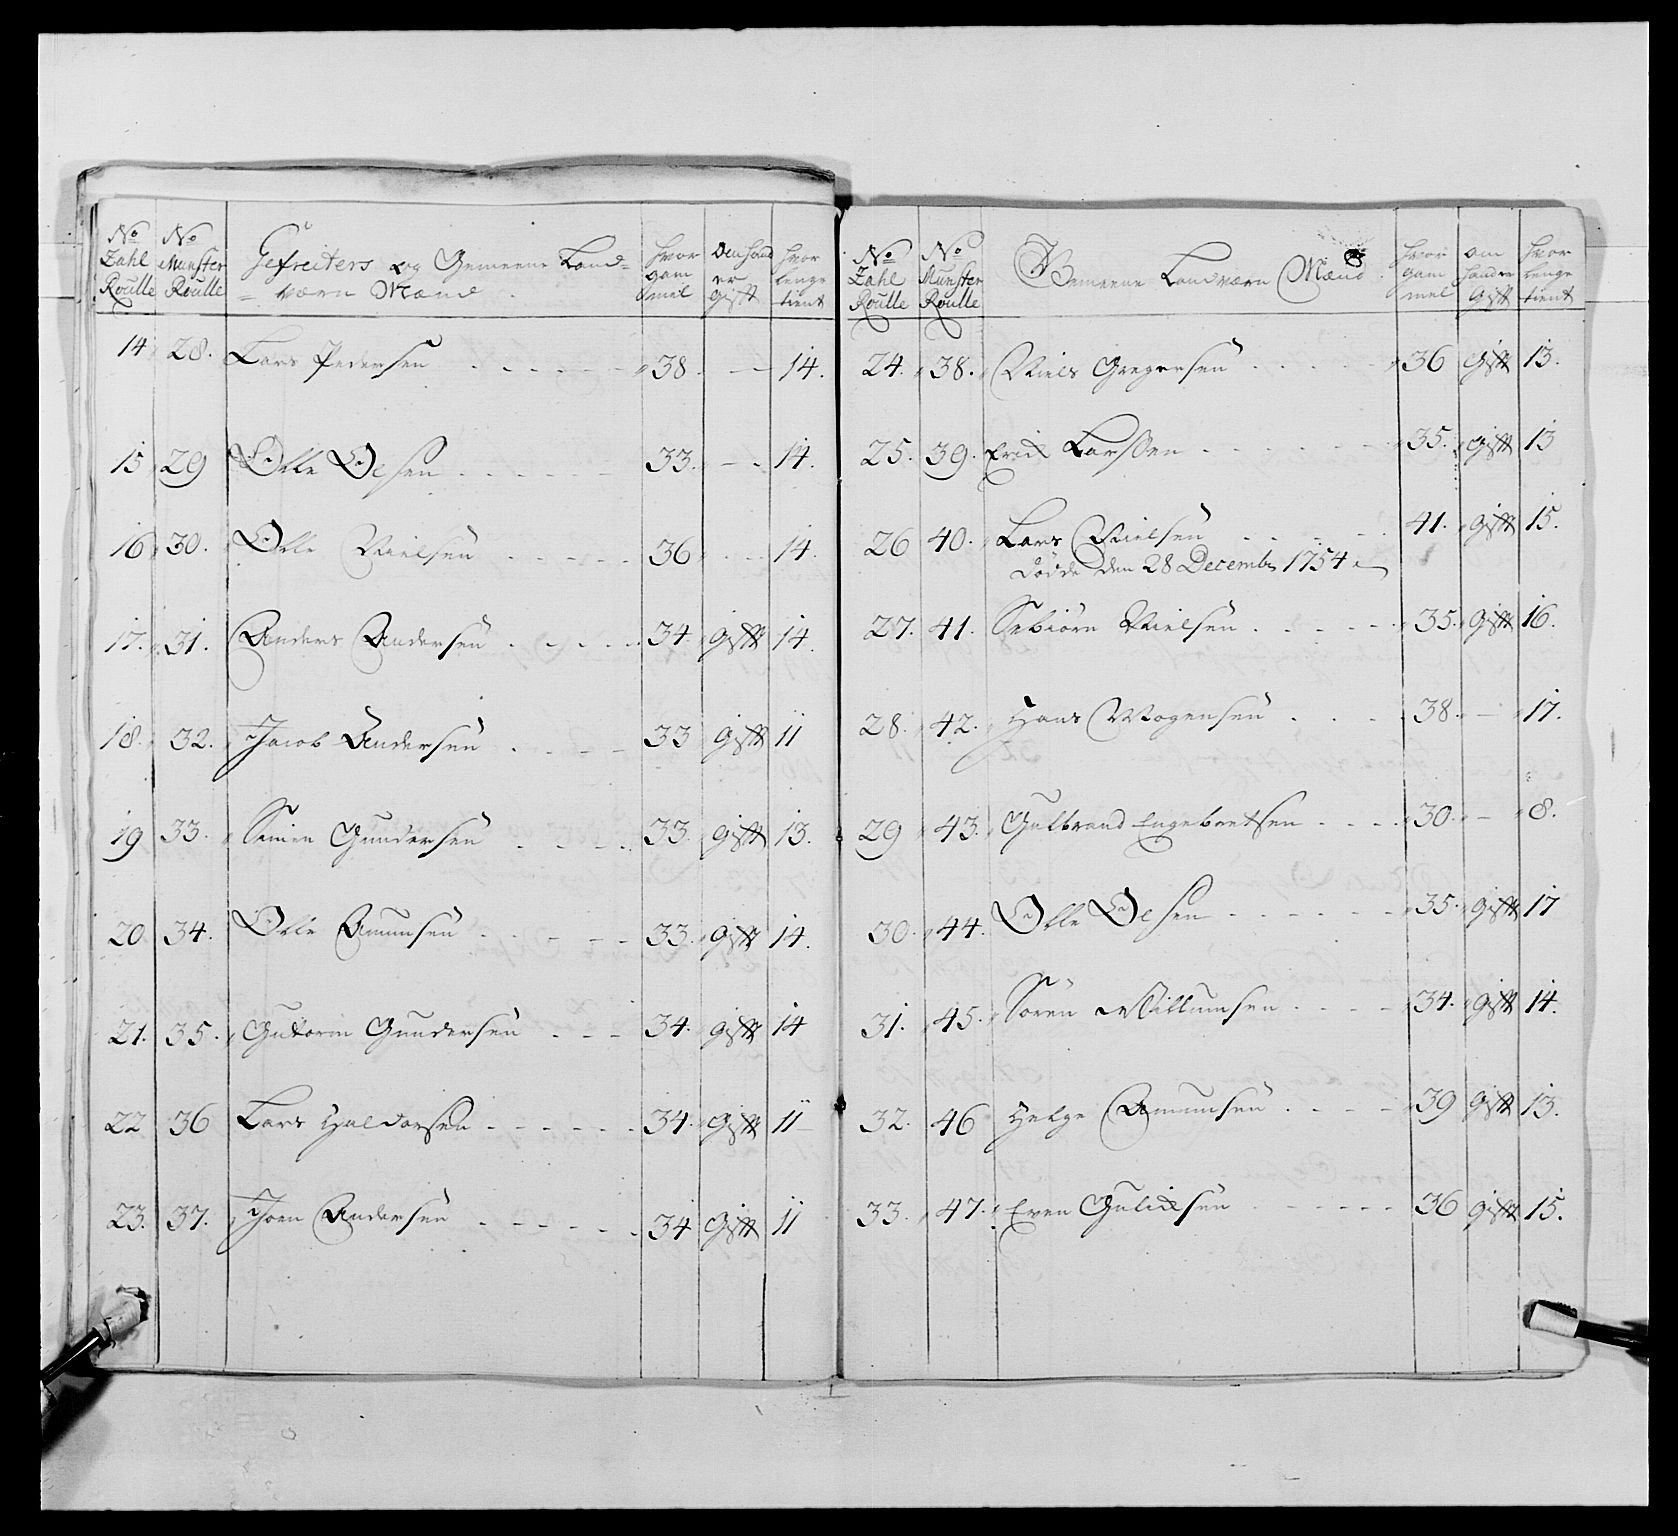 No Zahl Roulle | No Munster Roulle | Gefreiters og Gemeene Land= | hvor gam mel | om hand er Gifft | hvor lenge tient
= værn Mænd.
14 28. Lars Pedersen 38. — 14.
15 29 Olle Olsen 33. — 14.
16 30. Olle Nielsen 36 — 14.
17. 31. Anders Andersen 34 gifft 14.
18. 32. Jacob Andersen 33 gifft 11
19 33. Simen Gundersen 33. gifft 13.
20 34. Olle Amunsen 33. gifft 14.
21. 35. Guttorm Gundersen 34. gifft 14
22 36 Lars Haldorsen 34. gifft 11
23. 37. Joen Andersen 34 gifft 11
No Zahl Roulle | No Munster Roulle | Gemeene Landværn Mænd | hvor gam mel | om hand er Gifft | hvor lenge tient
24. 38. Niels Gregersen 36 gifft 13.
25. 39. Erich Larssen 35. gifft 13
26 40. Lars Nielsen 41. gifft 15.
døde den 28 Decembr 1754
27. 41. Sebiørn Nielsen 35. gifft 16.
28. 42. Hans Mogensen 38. — 17.
29 43. Gulbrand Engebretsen 30. — 8.
30. 44. Olle Olsen 35. gifft 17
31. 45. Sören Willumsen 34. gifft 14.
32. 46 Helge Amunsen 39 gifft 13.
33. 47. Even Gulichsen 36 gifft 15.